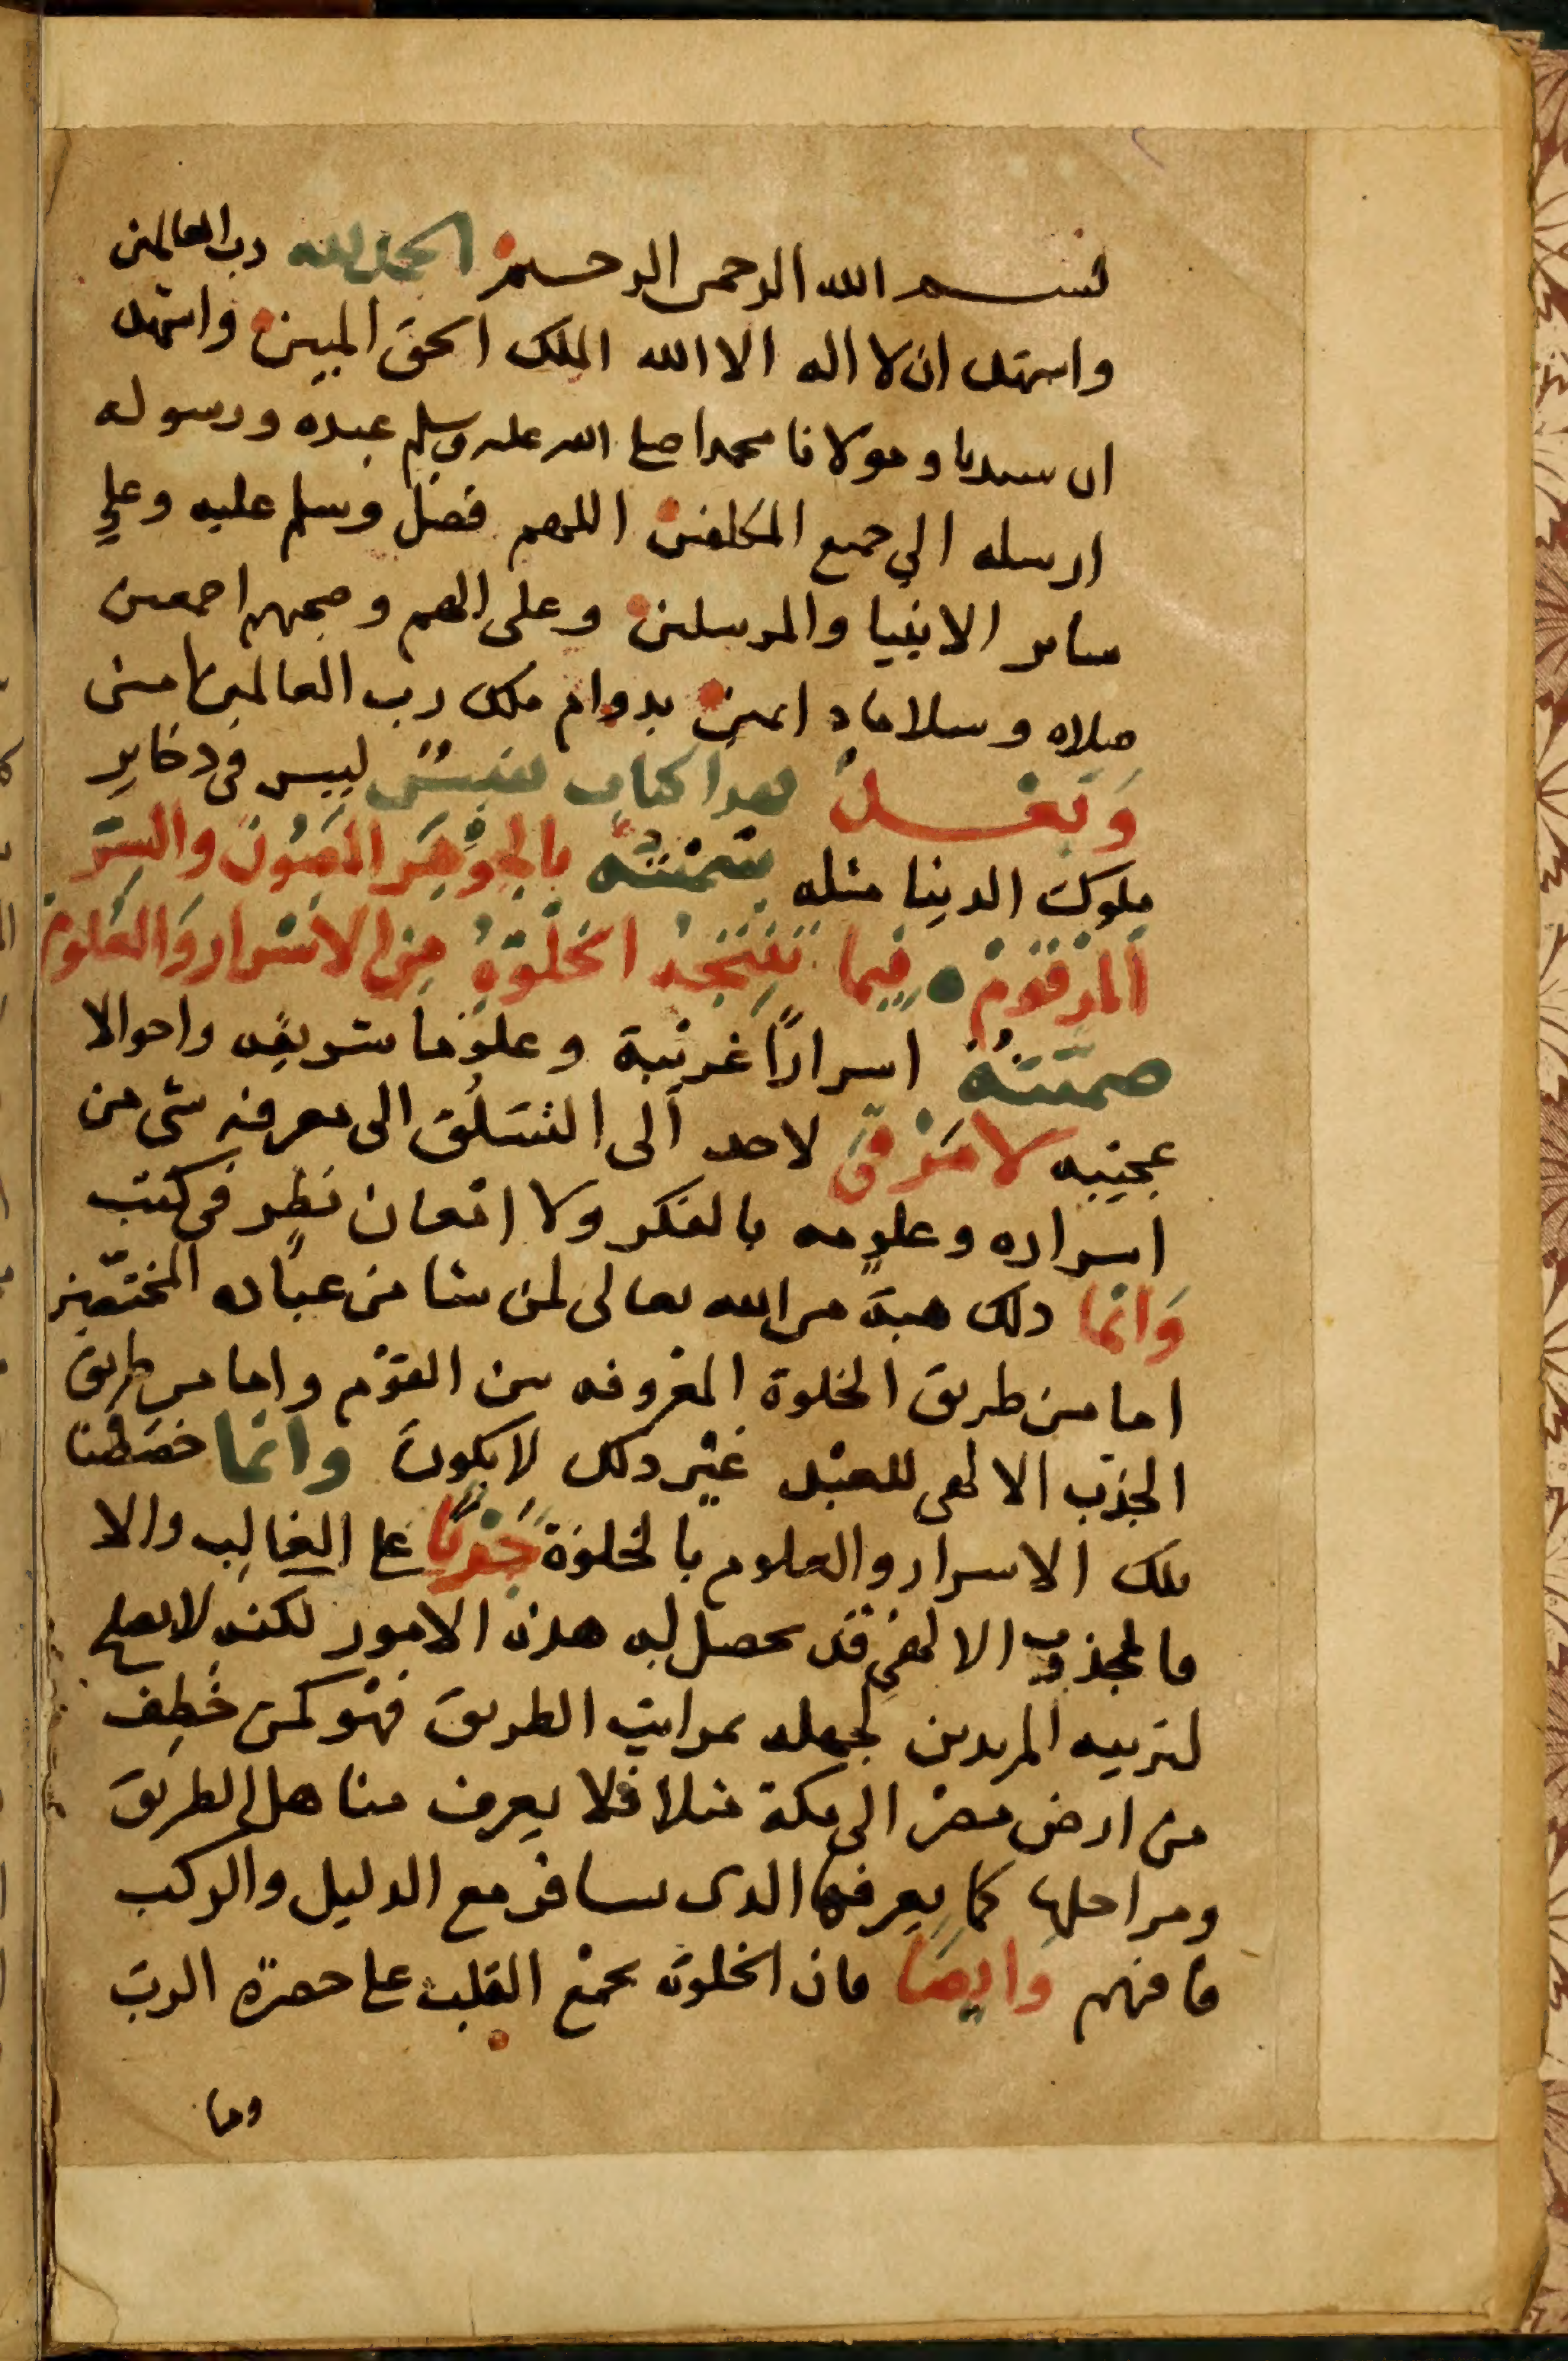 بسم الله الرحمن الرحيم الحمد لله رب العالمين
واشهد ان لا اله الا الله الملك الحق المبين واشهد
ان سيدنا ومولانا محمدا صلى الله عليه وسلم عبده ورسوله
ارسله الي جميع المكلفين اللهم فصل وسلم عليه وعلي
ساير الانبيا والمرسلين وعلى الهم وصحبهم اجمعين
صلاه وسلاما دايمين بدوام ملك رب العالمين امين
وَبَعْد فهذا كتاب نفيسٌ ليس في ذخاير
ملوك الدنيا مثله سَمَّيْتُه بالجَوْهَر المَصُون والسِّرّ
المَرْقُوم فيما تُنْتِجُهُ الخَلْوَةُ مِن الاسْرار وَالعُلُوم
ضمَّنْتُه اسرارًا غريبة وعلوما شريفه واحوالا
عجيبه لا مَرْقى لاحد الى التسَلُّق الى معرفه شي من
اسراره وعلومه بالفكر ولا امعان نظر في كتب
وَانما ذلك هبة من الله تعالى لمن شا من عباده المختصّين
اما من طريق الخلوة المعروفه بين القوْم واما من طريق
الجذب الالهى للعبْد غيْر ذلك لا يكون وانما خصَصْنا
تلك الاسرار والعلوم بالخلوَة جَرْيًا على الغالِب والا
فالمجذوب الالهي قد يحصل له هذه الامور لكنه لا يصلح
لتربيه المريدين لجهله بمراتب الطريق فهو كمن خُطِف
من ارض مصر الى مكة مثلا فلا يعرف مناهل الطريق
ومراحلها كما يعرفها الذى يسافر مع الدليل والركب
فافهم وَايضَا فان الخلوة تجمع القلب على حضرة الرب
وما